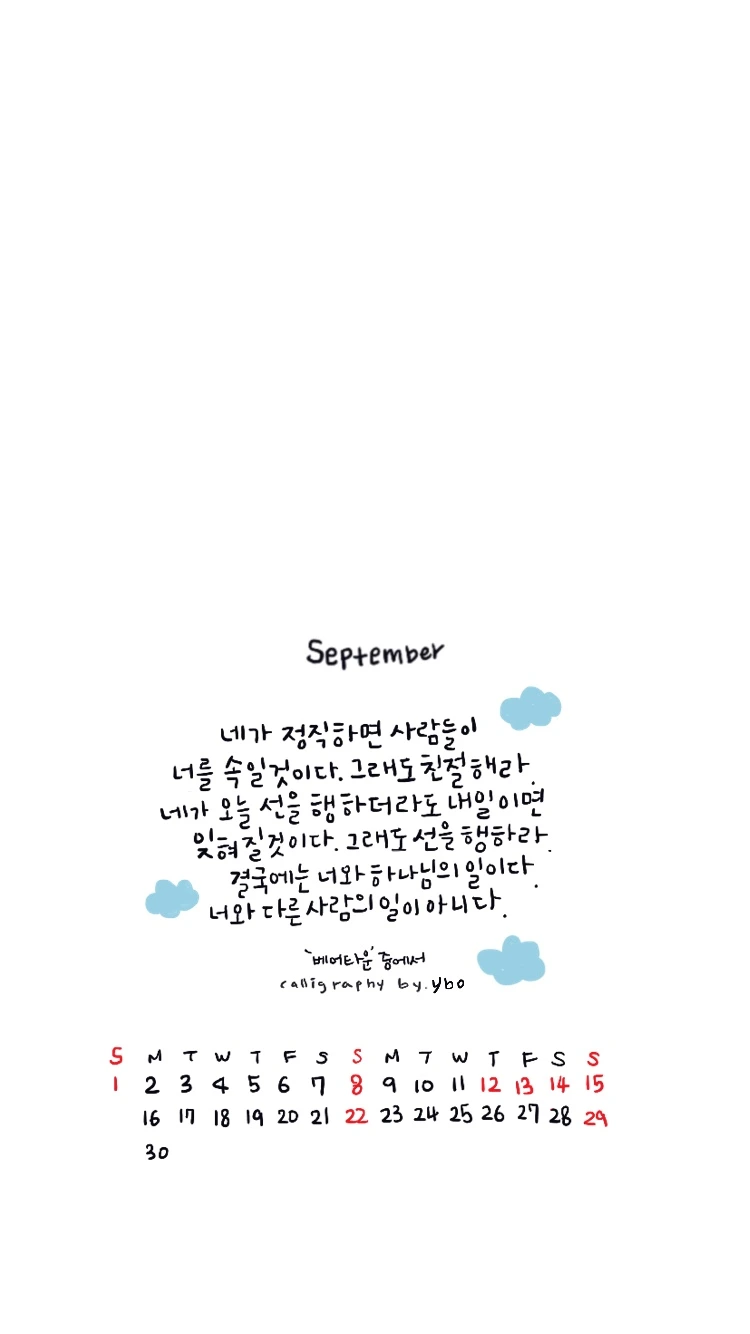 September
네가 정직하면 사람들이
너를 속일것이다. 그래도 친절해라.
네가 오늘 선을 행하더라도 내일이면
잊혀질것이다. 그래도 선을 행하라.
결국에는 너와 하나님의 일이다.
너와 다른 사람의 일이 아니다.
'베어타운' 중에서
calligraphy by.ybo
S M T W T F S S M T W T F S S
1 2 3 4 5 6 7 8 9 10 11 12 13 14 15
16 17 18 19 20 21 22 23 24 25 26 27 28 29
30